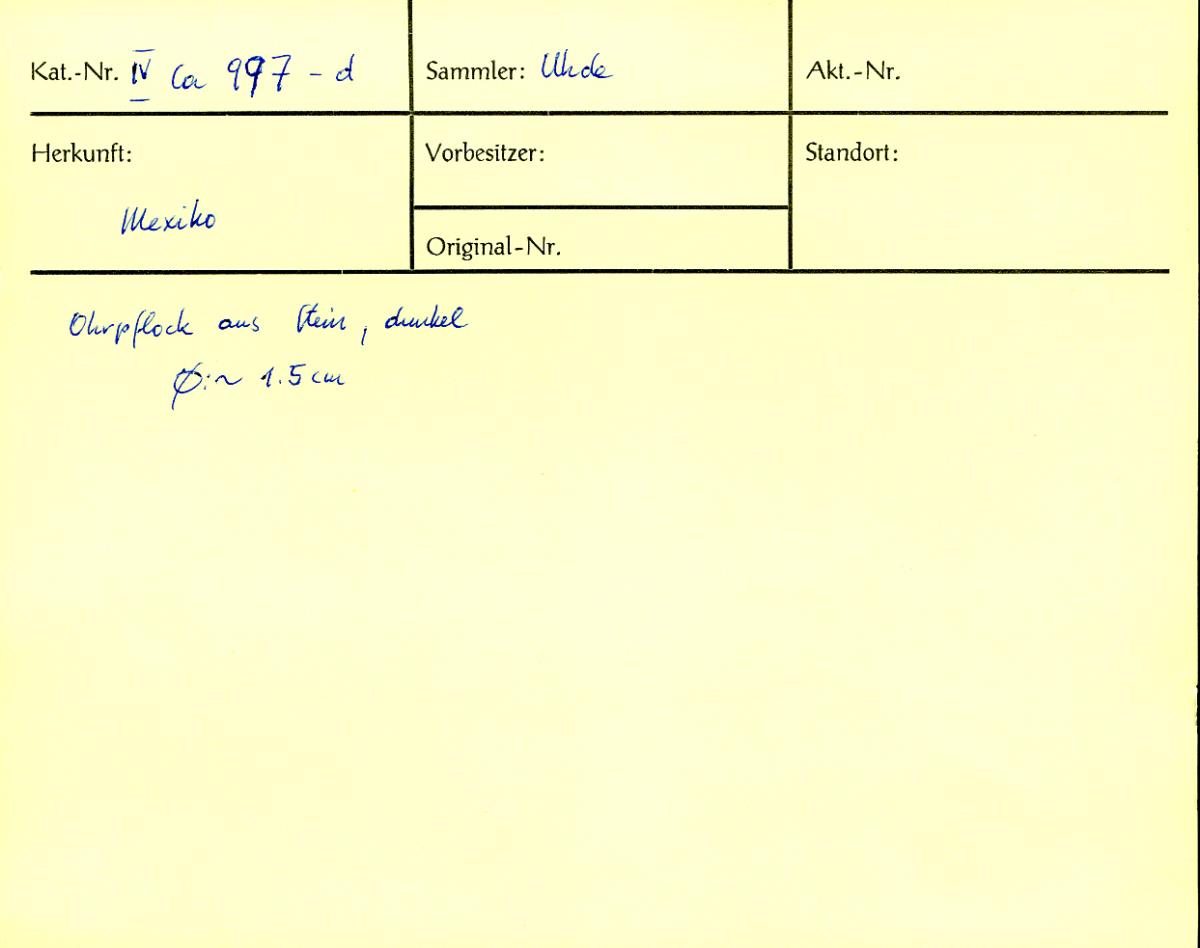 Kat.-Nr. IV Ca 997 - d
Sammler: Uhde
Akt.-Nr.
Herkunft:
Mexiko
Vorbesitzer:
Original-Nr.
Standort:
Ohrpflock aus Stein, dunkel
Ø: ~ 1.5 cm